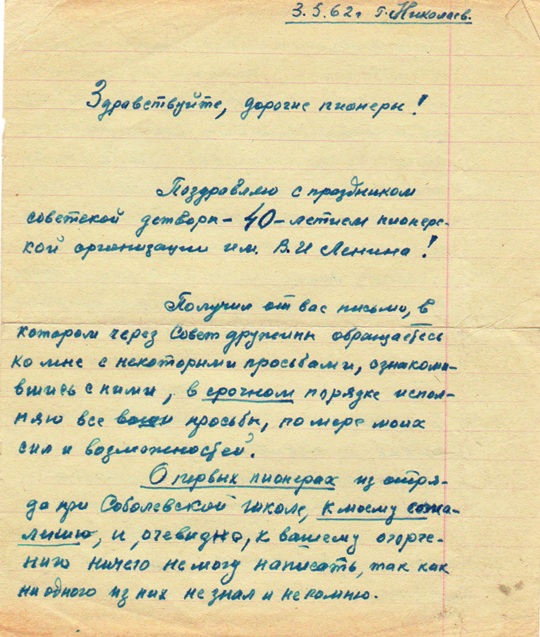 3.5.62г г.Николаев.
Здравствуйте, дорогие пионеры!
Поздравляю с праздником
советской детворы - 40-летием пионерс-
кой организации им. В.И Ленина!
Получил от вас письмо, в
котором через Совет дружины обращаетесь
ко мне с некоторыми просьбами, ознакомив-
шись с ними, в срочном порядке испол-
няю все ваши просьбы, по мере моих
сил и возможностей.
О первых пионерах из отря-
да при Соболевской школе, к моему сожа-
лению, и, очевидно, к вашему огорче-
нию ничего не могу написать, так как
ни одного из них не знал и не помню.